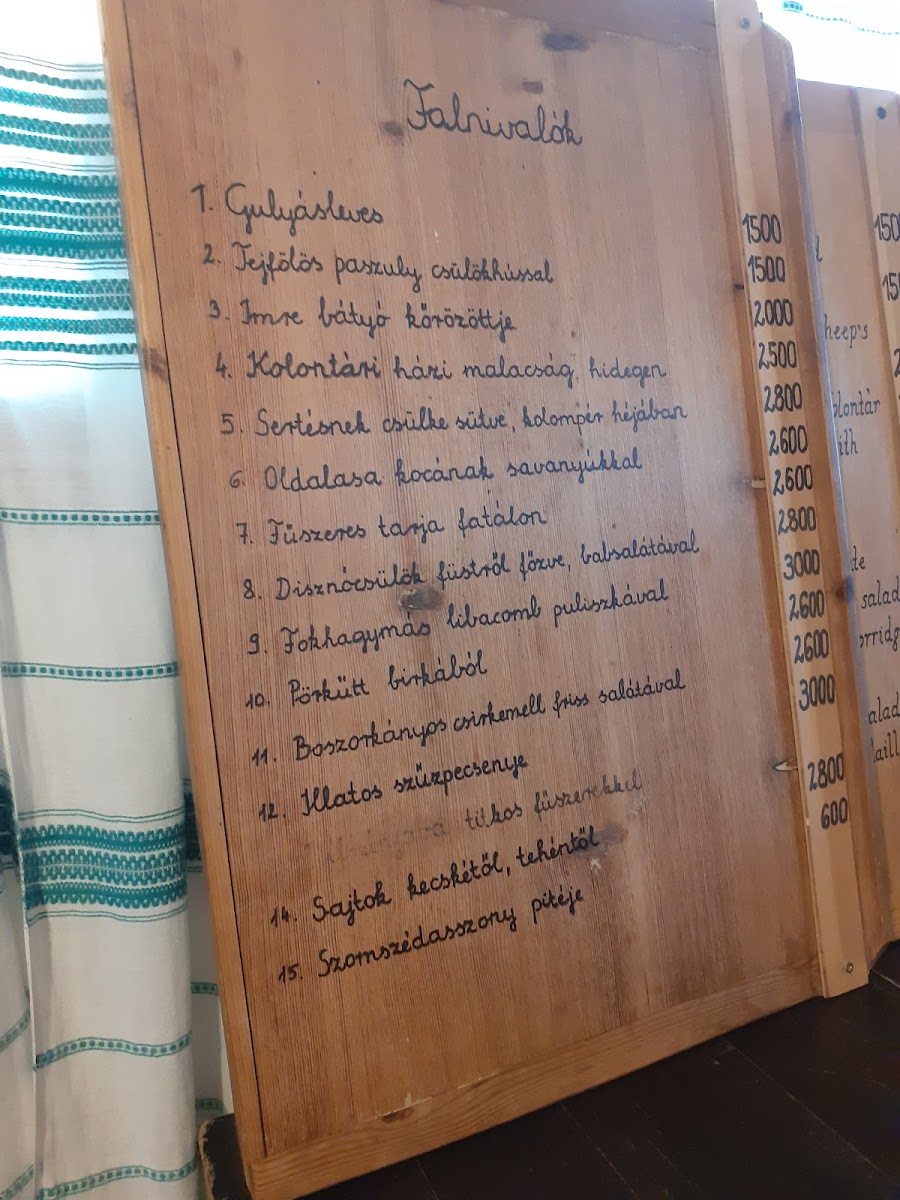 Falnivalók
1. Gulyásleves 1500
2. Tejfölös paszuly csülökhússal 1500
3. Imre bátyó kőrözöttje 2000
4. Kolontári házi malacság, hidegen 2500
5. Sertésnek csülke sütve, kolompér héjában 2800
6. Oldalasa kocának savanyúkkal 2600
7. Fűszeres tarja fatálon 2600
8. Disznócsülök füstről főzve, babsalátával 2800
9. Fokhagymás libacomb puliszkával 3000
10. Pörkütt birkából 2600
11. Boszorkányos csirkemell friss salátával 2600
12. Illatos szűzpecsenye 3000
titkos fűszerekkel
14. Sajtok kecskétől, tehéntől 2800
15. Szomszédasszony pitéje 600
150
15
heep's
olontár
ith
te
salad
orridg
alad
aill